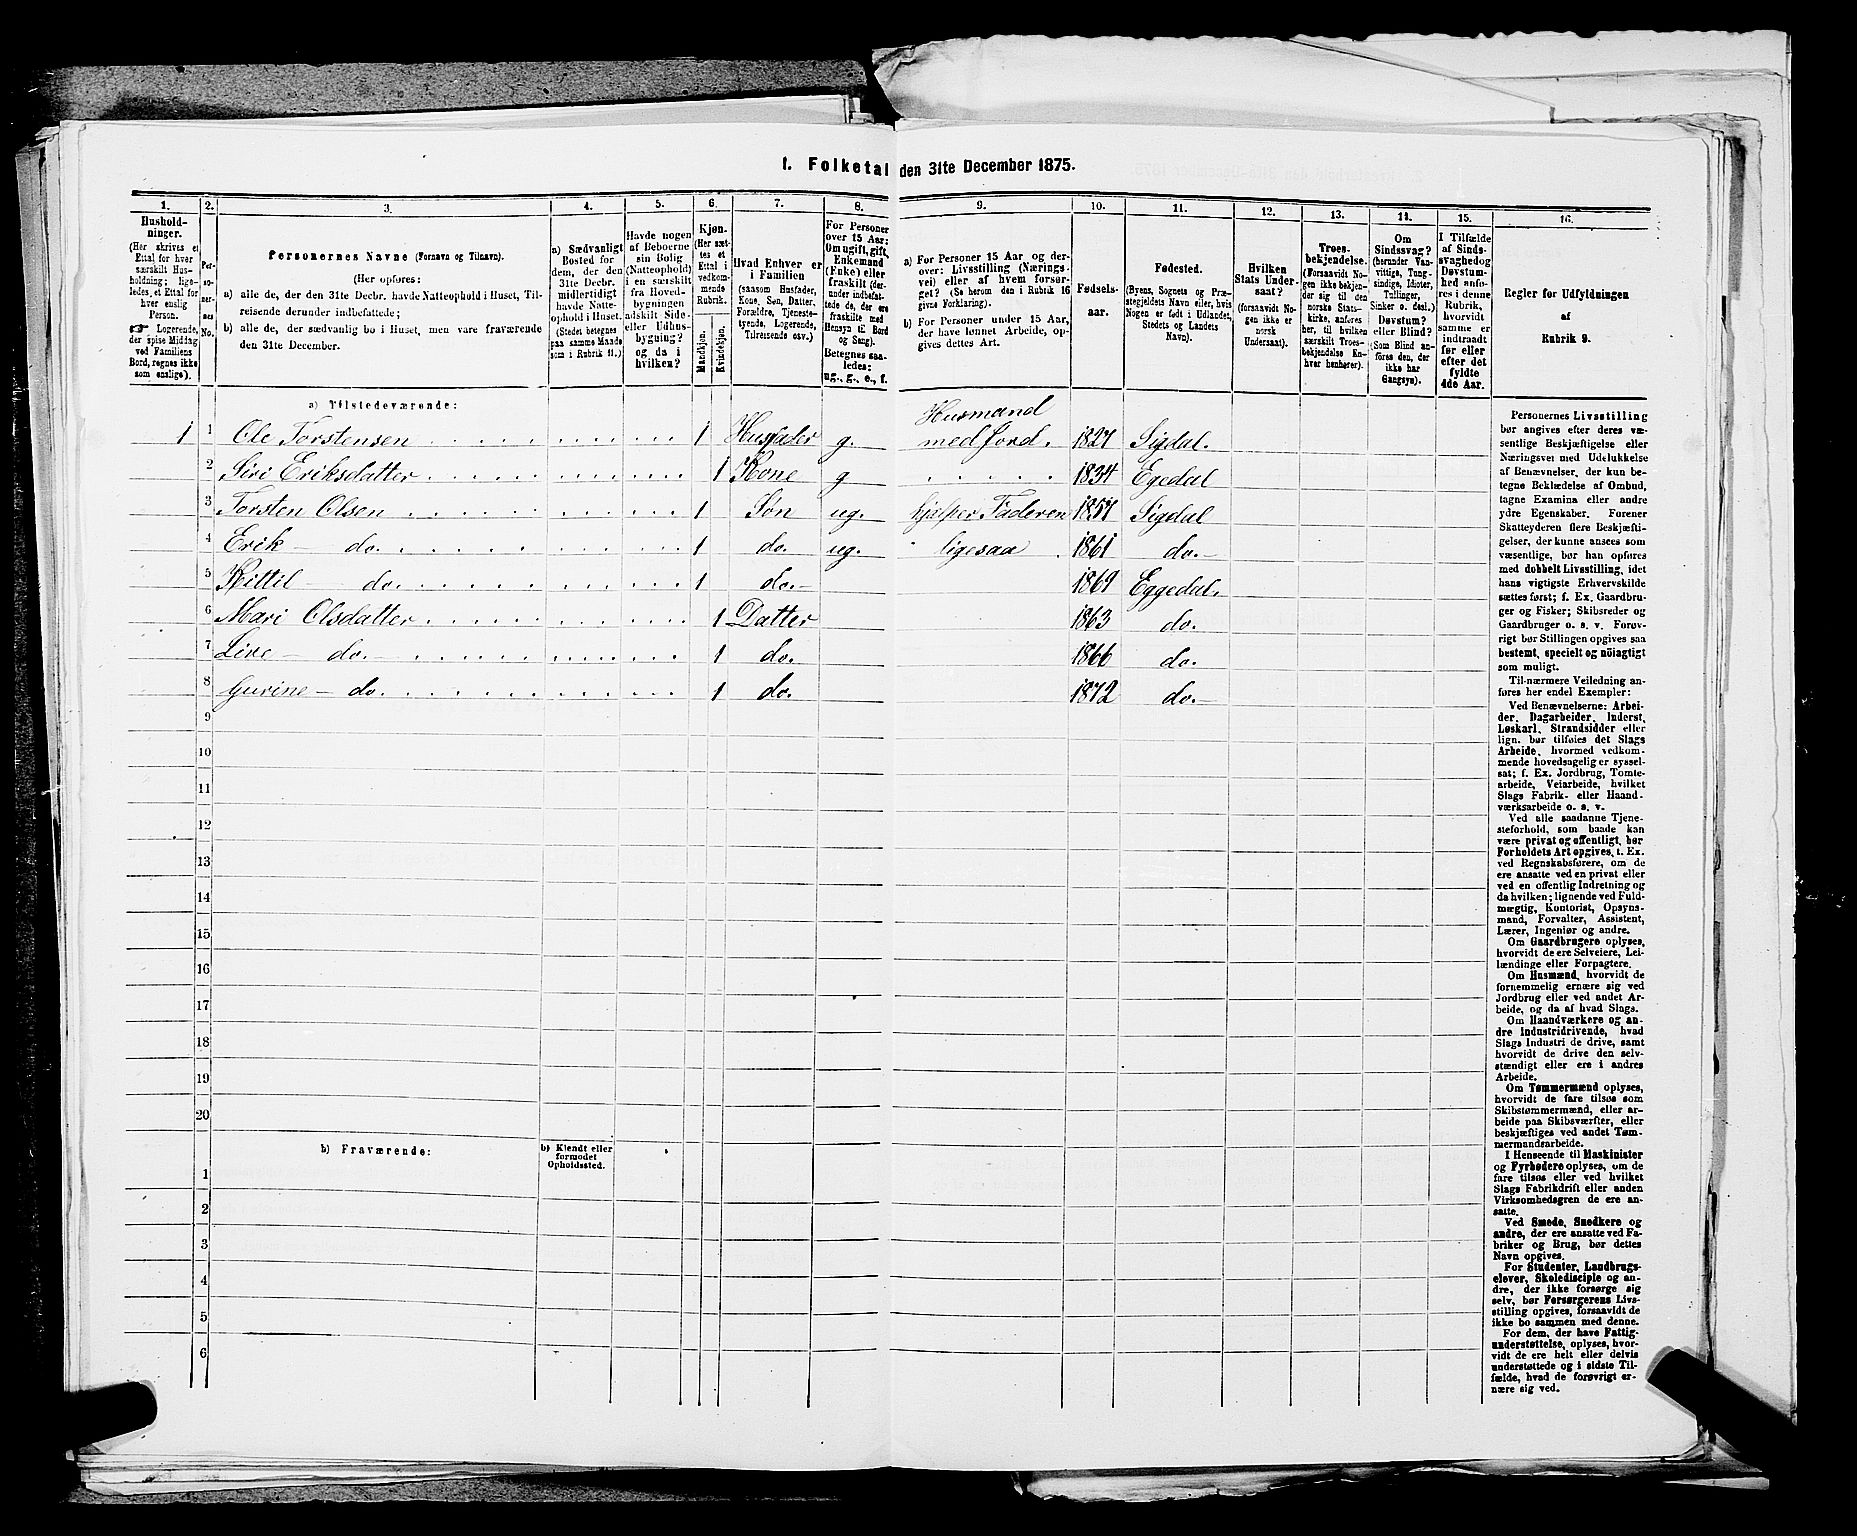 1. Folketal den 31te December 1875.
1. 2. 3. 4. 5. 6. 7. 8. 9. 10. 11. 12. 13. 14. 15. 16.
Hushold-
ninger.
(Her skrives et
Ettal for hver
særskilt Hus-
holdning; lige-
ledes, et Ettal for
hver enslig
Person.
☞ Logerende,
der spise Middag
ved Familiens
Bord, regnes ikke
som enslige).
Per-
so-
ner-
nes
No.
Personernes Navne (Fornavn og Tilnavn).
(Her opføres:
a) alle de, der den 31te Decbr. havde Natteophold i Huset, Til-
reisende derunder indbefattede;
b) alle de, der sædvanlig bo i Huset, men vare fraværende
den 31te December.
a) Sædvanligt
Bosted for
dem, der den
31te Decbr.
midlertidigt
havde Natte-
ophold i Huset.
(Stedet betegnes
paa samme Maade
som i Rubrik 11.)
Havde nogen
af Beboerne
sin Bolig
(Natteophold)
i en særskilt
fra Hoved-
bygningen
adskilt Side-
eller Udhus-
bygning?
og da i
hvilken?
Kjøn.
(Her sæt-
tes et
Ettal i
vedkom-
mende
Rubrik.
Mandkjøn.
Kvindekjøn.
Hvad Enhver er
i Familien
(saasom Husfader,
Kone, Søn, Datter,
Forældre, Tjeneste-
tyende, Logerende,
Tilreisende osv.)
For Personer
over 15 Aar:
Om ugift, gift,
Enkemand
(Enke) eller
fraskilt (der-
under indbefat-
tede de, der ere
fraskilte med
Hensyn til Bord
og Seng).
Betegnes saa-
ledes:
ug., g., e., f.
a) For Personer 15 Aar og der-
over: Livsstilling (Nærings-
vei) eller af hvem forsør-
get? (Se herom den i Rubrik 16
givne Forklaring).
b) For Personer under 15 Aar,
der have lønnet Arbeide, op-
gives dettes Art.
Fødsels-
aar.
Fødested.
(Byens, Sognets og Præ-
stegjeldets Navn eller, hvis
Nogen er født i Udlandet,
Stedets og Landets
Navn).
Hvilken
Stats Under-
saat?
(forsaavidt No-
gen ikke er
norsk
Undersaat).
Troes-
bekjendelse.
(Forsaavidt No-
gen ikke bekjen-
der sig til den
norske Stats-
kirke, anføres
her, til hvilken
særskilt Troes-
bekjendelse En-
hver henhører).
Om
Sindssvag?
(herunder Van-
vittige, Tung-
sindige, Idioter,
Tullinger,
Sinker o. desl.)
Døvstum?
eller Blind?
(Som Blind an-
føres den, der
ikke har
Gangsyn).
I Tilfælde
af Sinds-
svaghed og
Døvstum-
hed anfø-
res i denne
Rubrik,
hvorvidt
samme er
indtraadt
før eller
efter det
fyldte
4de Aar.
Regler for Udfyldningen
af
Rubrik 9.
a) Tilstedeværende:
Husmand
1 1 Ole Torstensen 1 Husfader g. med Jord. 1827 Sigdal.
2 Siri Eriksdatter 1 Kone g 1834 Egedal
3 Torsten Olsen 1 Søn ug. hjelper Faderen 1857 Sigdal
4 Erik — do. 1 do. ug. ligesaa 1861 do.
5 Kittil — do. 1 do. 1869 Eggedal.
6 Mari Olsdatter 1 Datter 1863 do.
7 Live — do. 1 do. 1866 do.
8 Gurine — do. 1 do. 1872 do.
9
10
11
12
13
14
15
16
17
18
19
20
b) Fraværende:
b) Kjendt eller
formodet
Opholdssted.
1
2
3
4
5
6
Personernes Livsstilling
bør angives efter deres væ-
sentlige Beskjæftigelse eller
Næringsvei med Udelukkelse
af Benævnelser, der kun be-
tegne Beklædelse af Ombud,
tagne Examina eller andre
ydre Egenskaber. Forener
Skatteyderen flere Beskjæfti-
gelser, der kunne ansees som
væsentlige, bør han opføres
med dobbelt Livsstilling, idet
hans vigtigste Erhvervskilde
sættes først; f. Ex. Gaardbru-
ger og Fisker; Skibsreder og
Gaardbruger o. s. v. Forøv-
rigt bør Stillingen opgives saa
bestemt, specielt og nöiagtigt
som muligt.
Til nærmere Veiledning an-
føres her endel Exempler:
Ved Benævnelserne: Arbei-
der, Dagarbeider, Inderst,
Løskarl, Strandsidder eller
lign. bør tilføies det Slags
Arbeide, hvormed vedkom-
mende hovedsagelig er syssel-
sat; f. Ex. Jordbrug, Tomte-
arbeide, Veiarbeide, hvilket
Slags Fabrik- eller Haand-
værksarbeide o. s. v.
Ved alle saadanne Tjene-
steforhold, som baade kan
være privat og offentligt, bør
Forholdets Art opgives, t. Ex.
ved Regnskabsførere, om de
ere ansatte ved en privat eller
ved en offentlig Indretning og
da hvilken; lignende ved Fuld-
mægtig, Kontorist, Opsyns-
mand, Forvalter, Assistent,
Lærer, Ingeniør og andre.
Om Gaardbrugere oplyses,
hvorvidt de ere Selveiere, Lei-
lændinge eller Forpagtere.
Om Husmænd, hvorvidt de
fornemmelig ernære sig ved
Jordbrug eller ved andet Ar-
beide, og da af hvad Slags.
Om Haandværkere og an-
dre Industridrivende, hvad
Slags Industri de drive, samt
hvorvidt de drive den selv-
stændigt eller ere i andres
Arbeide.
Om Tømmermænd oplyses,
hvorvidt de fare tilsøs som
Skibstømmermænd, eller ar-
beide paa Skibsværfter, eller
beskjæftiges ved andet Tøm-
mermandsarbeide.
I Henseende til Maskinister
og Fyrbødere oplyses, om de
fare tilsøs eller ved hvilket
Slags Fabrikdrift eller anden
Virksomhedsgren de ere an-
satte.
Ved Smede, Snedkere og
andre, der ere ansatte ved Fa-
briker og Brug, bør dettes
Navn opgives.
For Studenter, Landbrugs-
elever, Skoledisciple og an-
dre, der ikke forsørge sig
selv, bør Forsørgerens Livs-
stilling opgives, forsaavidt de
ikke bo sammen med denne.
For dem, der have Fattig-
understøttelse, oplyses, hvor-
vidt de ere helt eller delvis
understøttede og i sidste Til-
fælde, hvad de forøvrigt er-
nære sig ved.